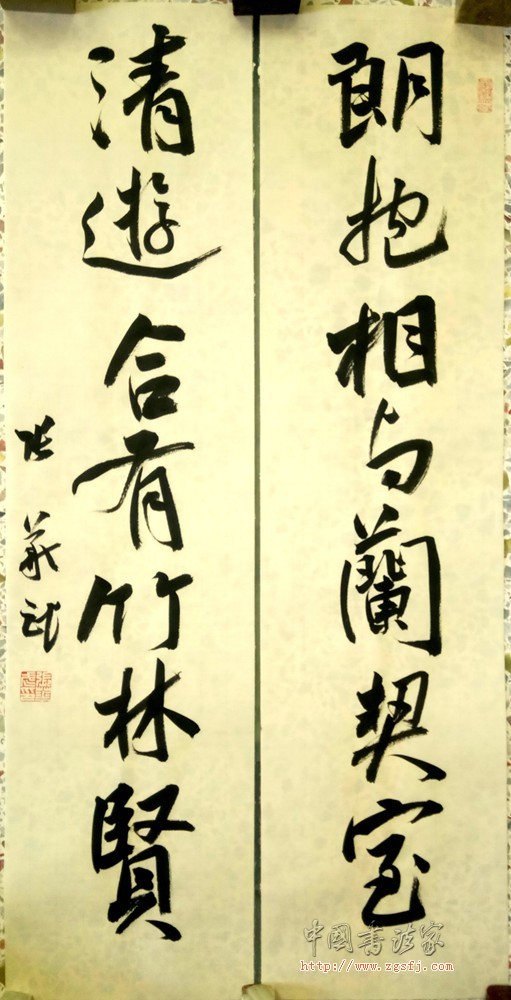 朗抱相与蘭契室
清遊合有竹林賢
张義
中國書法家
http://www.zgsfj.com